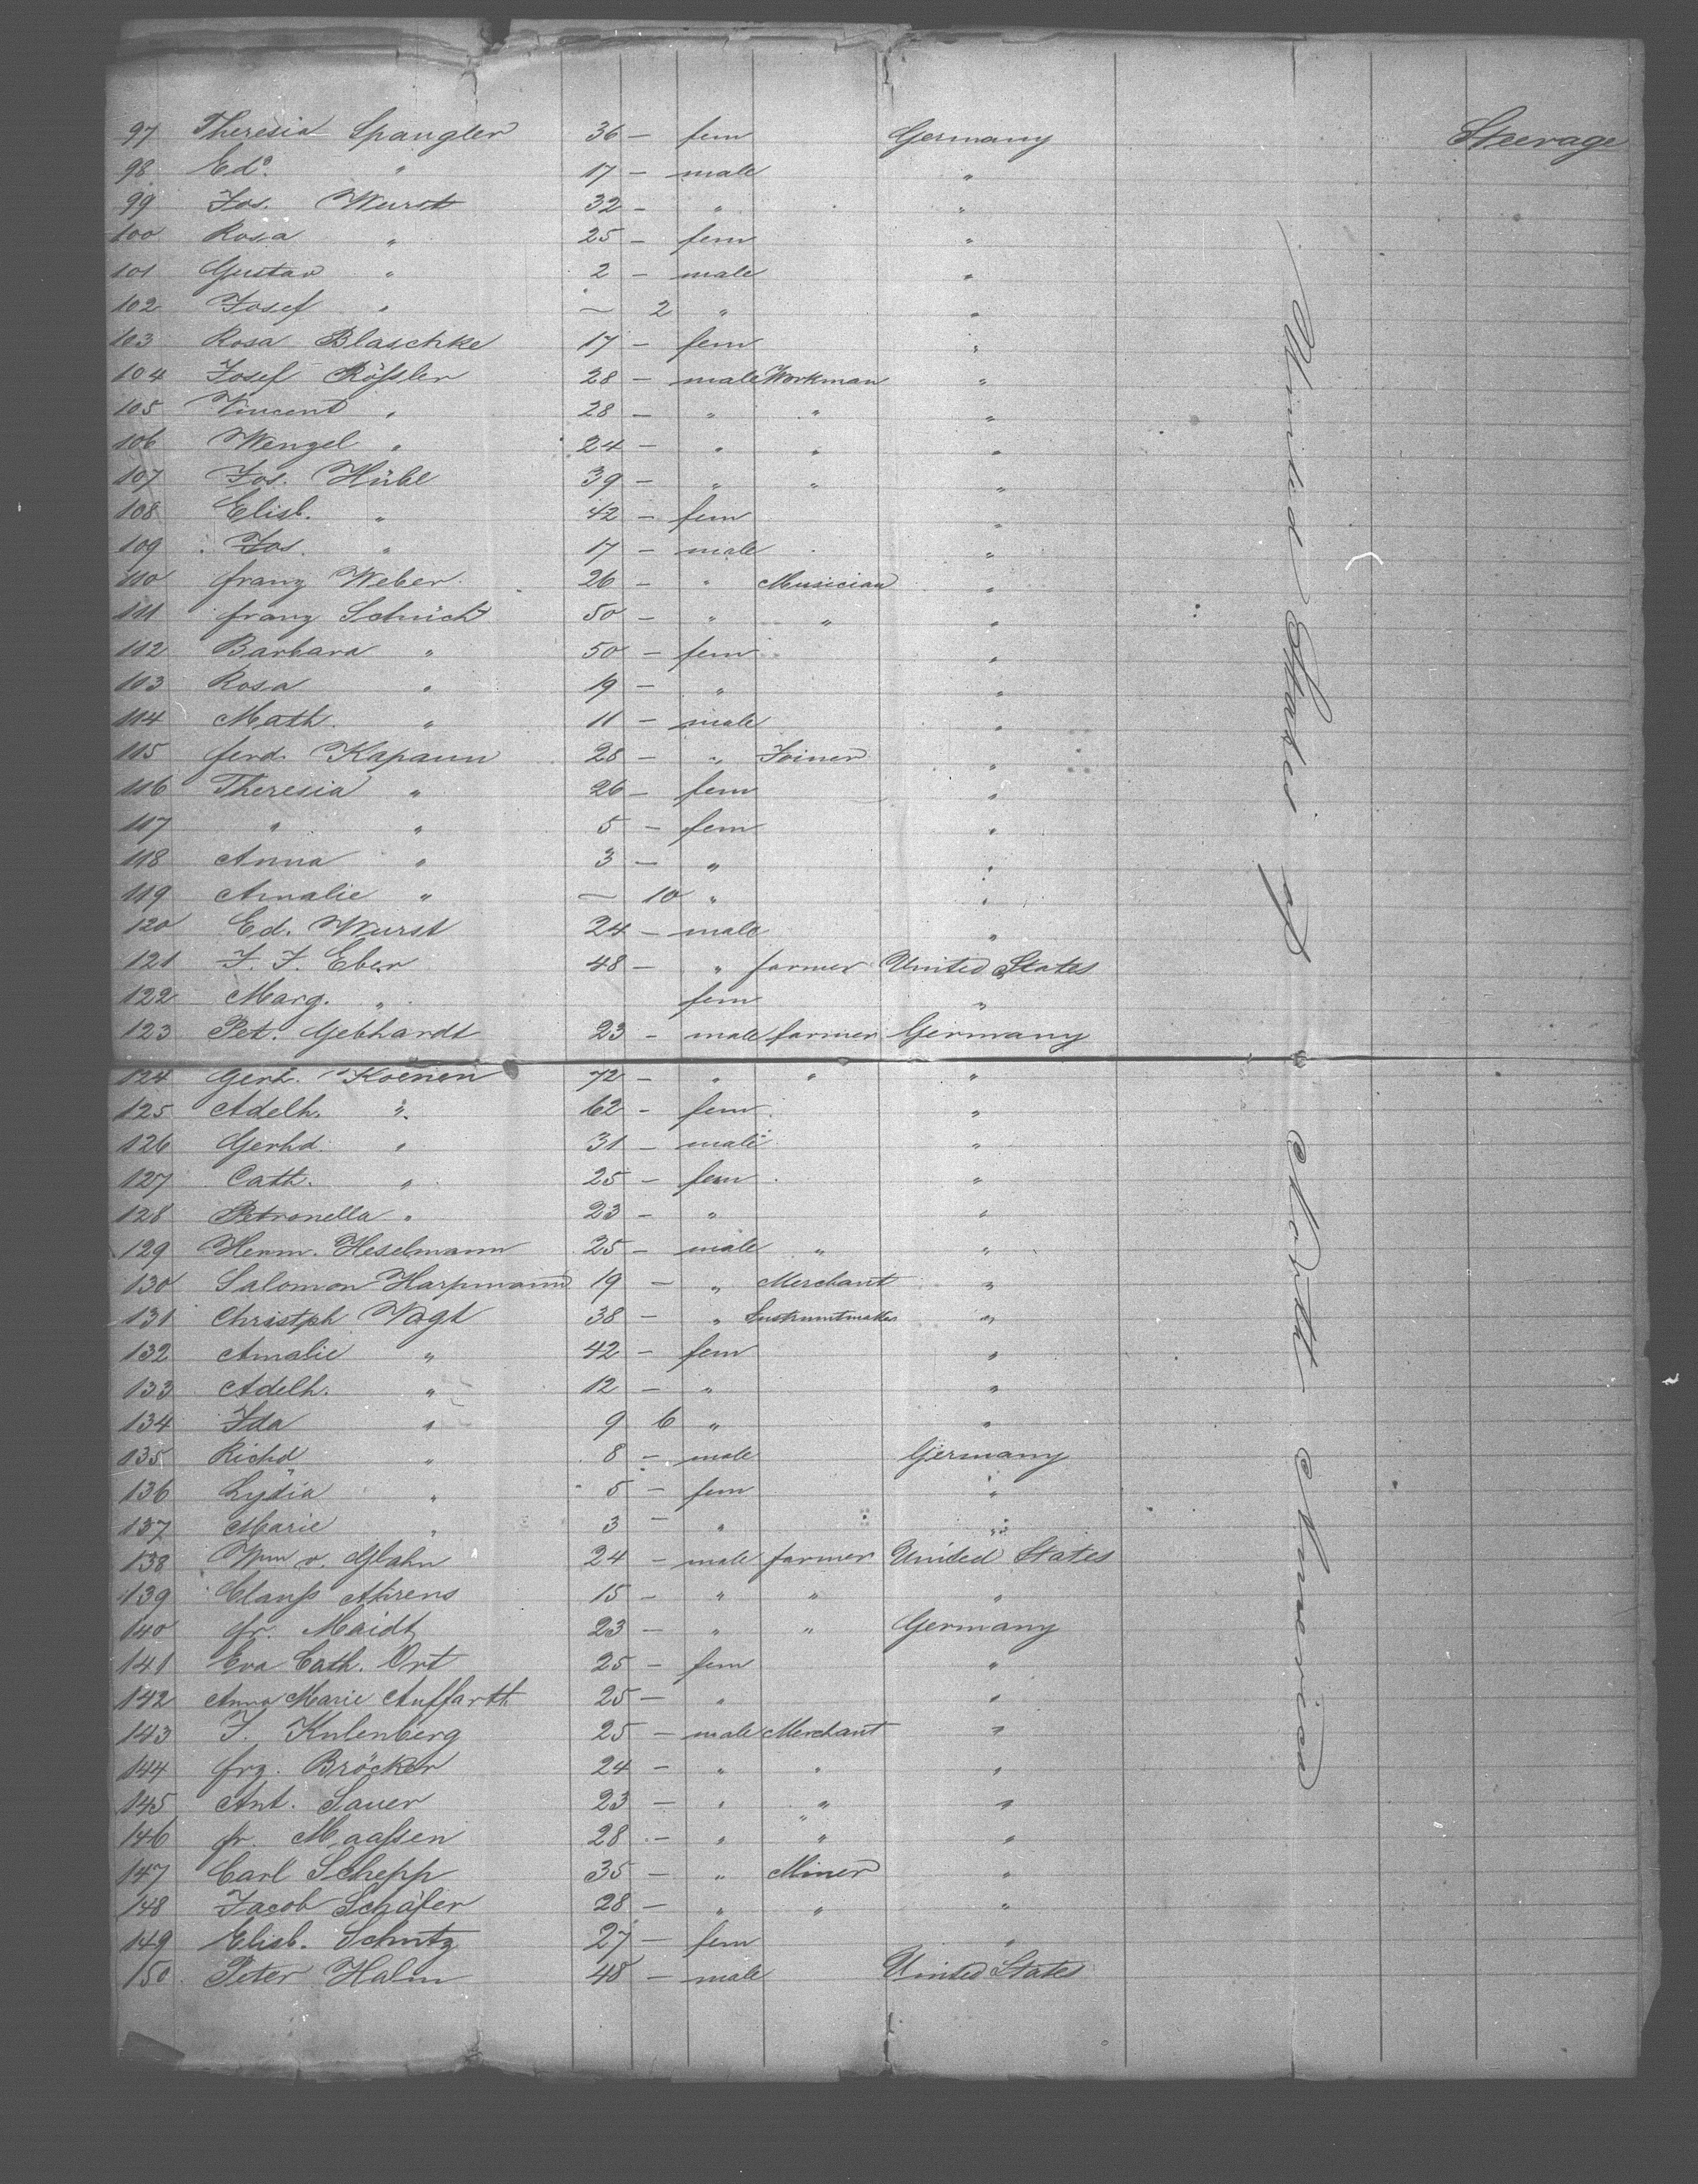 97 Theresia Spangler 36 — fem Germany Steerage
98 Edd. " 17 — male "
99 Jos. Wurst 32 — " "
100 Rosa " 25 — fem "
101 Gustav " 2 — male "
102 Josef " — 2 " "
103 Rosa Blaschke 17 — fem "
104 Josef Rößler 28 — male Workman "
105 Vincent " 28 — " " "
106 Wenzel " 24 — " " "
107 Jos. Hübl 39 — " " "
108 Elisb. " 42 — fem "
109 Jos. " 17 — male "
110 franz Weber 26 — " Musician "
111 franz Schicht 50 — " " "
112 Barbara " 50 — fem "
113 Rosa " 19 — " "
114 Math. " 11 — male "
115 ferd. Kapaun 28 — " Joiner "
116 Theresia " 26 — fem "
117 " " 5 — fem "
118 Anna " 3 — " "
119 Amalie " — 10 " "
120 Ed. Wurst 24 — male "
121 J. J. Eber 48 — " farmer United States
122 Marg. " fem "
123 Pet. Gebhardt 23 — male farmer Germany
124 Gerh. Koenen 72 — " " "
125 Adelh. " 62 — fem "
126 Gerhd. " 31 — male "
127 Cath. " 25 — fem "
128 Petronella " 23 — " "
129 Herm. Heselmann 25 — male " "
130 Salomon Harpmann 19 — " Merchant "
131 Christph Vogt 38 — " Instrumtmaker "
132 Amalie " 42 — fem "
133 Adelh. " 12 — " "
134 Ida " 9 6 " "
135 Richd " 8 — male Germany
136 Lydia " 5 — fem "
137 Marie " 3 — " "
138 Wm v. Glahn 24 — male farmer United States
139 Clauß Ahrens 15 — " " "
140 fr. Maidt 23 — " " Germany
141 Eva Cath. Ort 25 — fem "
142 Anna Marie Auffarth 25 — " "
143 J. Kulenberg 25 — male Merchant "
144 frz. Bröcker 24 — " " "
145 Ant. Sauer 23 — " " "
146 fr. Maaßen 28 — " " "
147 Carl Schepp 35 — " Miner "
148 Jacob Schäfer 28 — " " "
149 Elisb. Schutz 27 — fem "
150 Peter Halm 48 — male United States
United States of North America